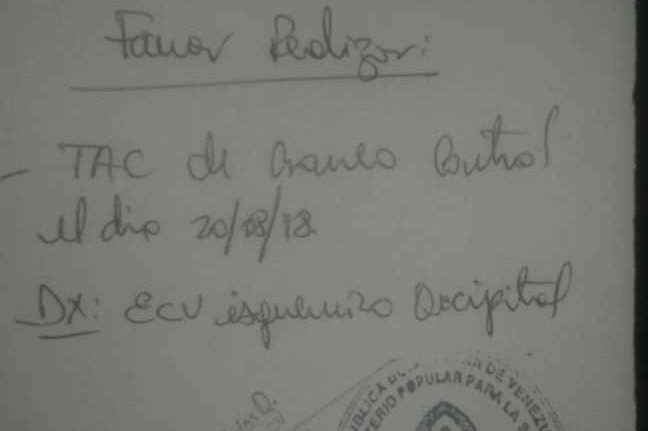 Favor Realizar:
- TAC de Craneo Control
el dia 20/08/18.
DX: ECV isquemico Occipital
DE VENEZU
POPULAR PARA LA S